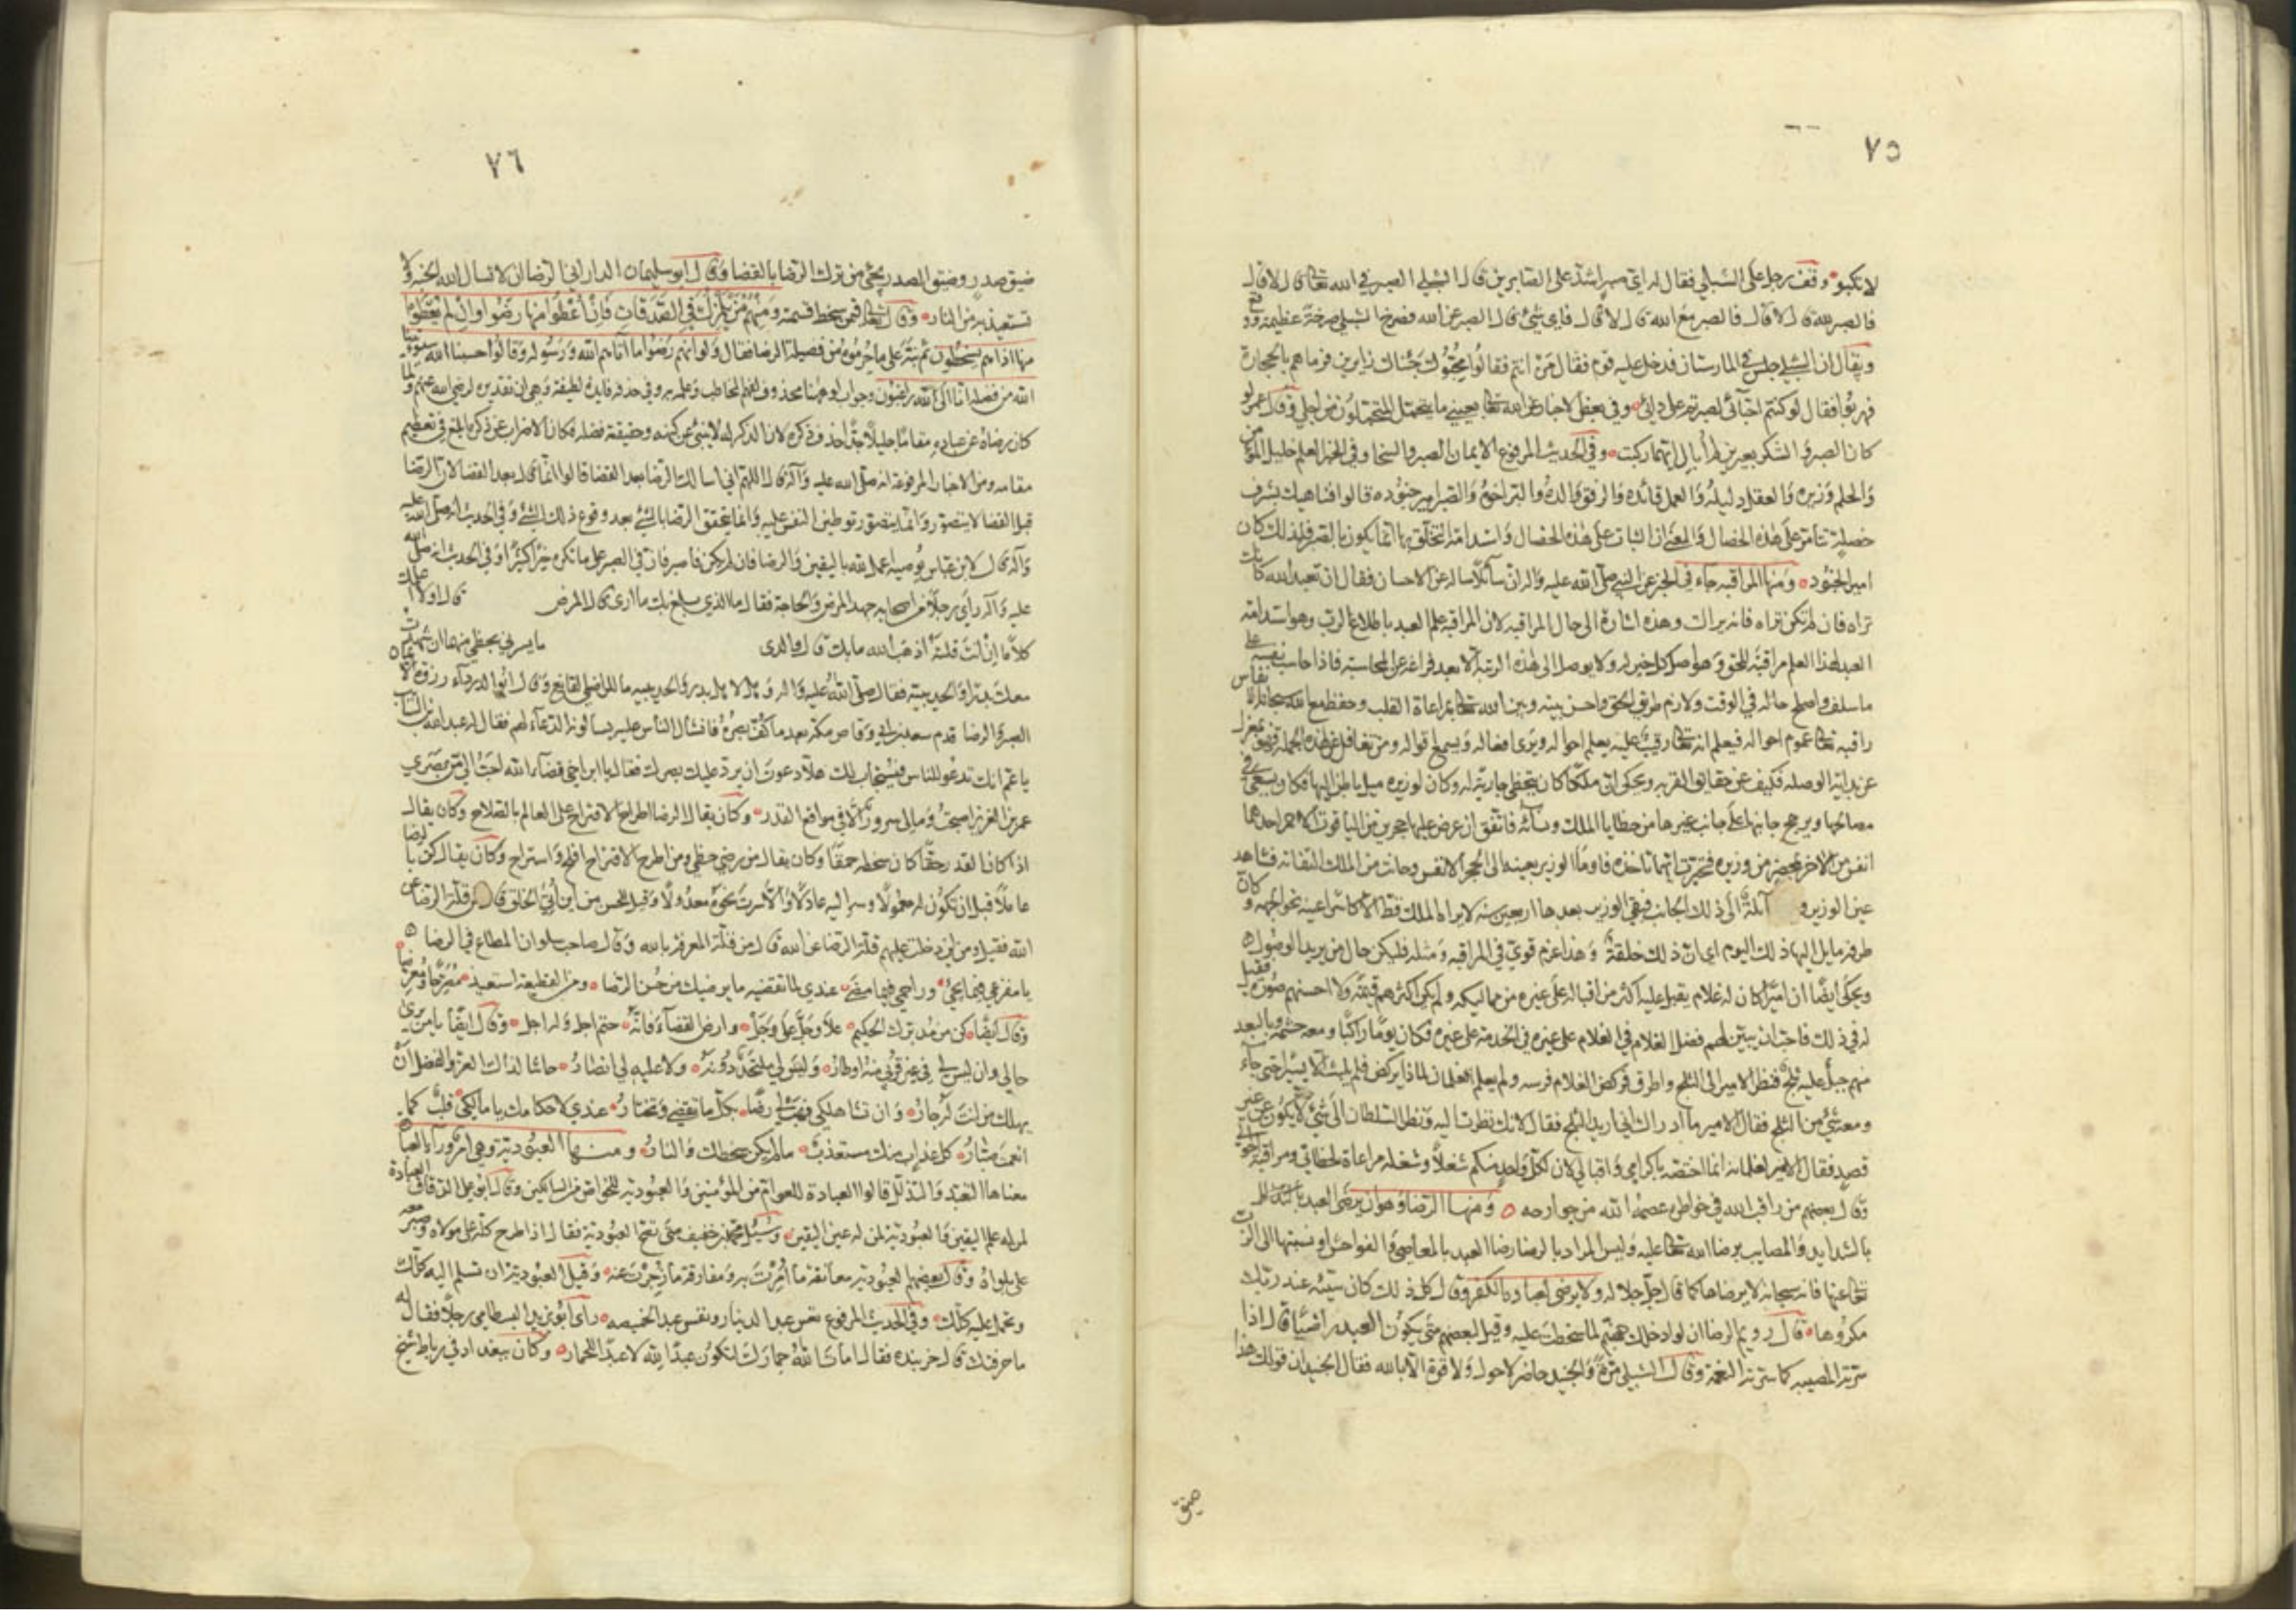 ٧٥
لا يكبو وقف رجل على الشبلي فقال له اي صبر اشد على الصابرين قال الشبلي الصبر في الله تعالى قال لا قال
فالصبر لله قال لا قال فالصبر مع الله قال لا قال فاي شيء قال الصبر عن الله فصرخ الشبلي صرخة عظيمة ووقع
ويقال ان الشبلي جلس في المارستان فدخل عليه قوم فقال من انتم فقالوا محبوك جئناك زايرين فرماهم بالحجارة
فهربوا فقال لو كنتم احبائي لصبرتم على بلائي وفي بعض الاخبار عن الله تعالى بعيني ما يتحمل المتحملون من اجلي وقال عمر لو
كان الصبر والشكر بعيرين لم أبال ايهما ركبت وفي الحديث المرفوع الايمان الصبر والسخا وفي الخبر العلم خليل المؤمن
والحلم وزيره والعقل دليله والعمل قائده والرفق والده والبر اخوه والصبر امير جنوده قالوا فناهيك بشرف
خصلة تتأمر على هذه الخصال والمعنى ان الثبات على هذه الخصال واستدامة التخلق بها انما يكون بالصبر فلذلك كان
امير الجنود ومنها المراقبه جاء في الخبر عن النبي صلى الله عليه واله ان سائلا ساله عن الاحسان فقال ان تعبد الله كانك
تراه فان لم تكن تراه فانه يراك وهذه اشارة الى حال المراقبه لان المراقبه علم العبد باطلاع الرب وهو استدامة
العبد لهذا العلم مراقبة للحق وهو اصل كل خير له ولا يوصل الى هذه الرتبة الا بعد فراغه عن المحاسبه فاذا حاسب نفسه على
ما سلف واصلح حاله في الوقت ولازم طريق الحق واحسن بينه وبين الله تعالى بمراعاة القلب وحفظ مع الله سبحانه الانفاس
راقبه تعالى في عموم احواله فيعلم انه تعالى رقيب عليه يعلم احواله ويرى افعاله ويسمع اقواله ومن تغافل عن هذه الجملة فهو بمعزل
عن بداية الوصله فكيف عن حقائق القربه ويحكى ان ملكا كان يتحظى جارية له وكان لوزيره ميل باطن اليها فكان يسعى في
مصالحها ويرجح جانبها على جانب غيرها من حظايا الملك ونسائه فاتفق ان عرض عليها حجرين من الياقوت الاحمر احدهما
انفس من الاخر بمحضر من وزيره فتحيرت ايهما تاخذه فاوما الوزير بعينه الى الحجر الانفس وحانت من الملك التفاته فشاهد
عين الوزير و مائلة الى ذلك الجانب فبقي الوزير بعدها اربعين سنه لا يراه الملك قط الا كاسرا عينه نحو الجهه وكان
طرفه مايل اليها ذلك اليوم اي ان ذلك خلقة وهذا عزم قوي في المراقبه ومثله فليكن حال من يريد الوصول
ويحكى ايضا ان اميرا كان له غلام يقبل عليه اكثر من اقباله على غيره من مماليكه ولم يكن اكثرهم قيمة ولا احسنهم صورة فقيل
له في ذلك فاحب ان يبين لهم فضل الغلام في الخدمة على غيره فكان يوما راكبا ومعه حشمه وبالبعد
منهم جبل عليه ثلج فنظر الامير الى الثلج واطرق فركض الغلام فرسه ولم يعلم الغلمان لماذا يركض فلم يلبث الا يسيرا حتى جاء
ومعه شيء من الثلج فقال الامير ما ادراك اني اريد الثلج فقال لانك نظرت اليه ونظر السلطان الى شيء لا يكون عن غير
قصد فقال الامير لغلمانه انما اخصه باكرامي واقبالي لان لكل واحد منكم شغلا وشغله مراعاة لحظاتي ومراقبة احوالي
وقال بعضهم من راقب الله في خواطره عصمه الله من جوارحه ومنها الرضا وهو ان يرضى العبد
بالشدايد والمصايب برضا الله تعالى عليه وليس المراد بالرضا رضا العبد بالمعاصي والفواحش او نسبتها الى الرب
تعالى عنها فانه سبحانه لا يرضاها كما قال جل جلاله ولا يرضى لعباده الكفر وقال كل ذلك كان سيئه عند ربك
مكروها قال رويم الرضا ان لو ادخلك جهنم لما سخطت عليه وقيل لبعضهم متى يكون العبد راضيا قال اذا
سرته المصيبه كما سرته النعمة وقال الشبلي مرة والجنيد حاضر لا حول ولا قوة الا بالله فقال الجنيد ان قولك هذا
ضيق
٧٦
ضيق صدر وضيق الصدر يجيء من ترك الرضا بالقضا وقال ابو سليمان الداراني الرضا ان لا تسال الله الجنه ولا
تستعيذ به من النار وقال تعالى فيمن سخط قسمته ومنهم من يلمزك في الصدقات فان أعطوا منها رضوا وان لم يعطوا
منها اذا هم يسخطون ثم نبه على ما حرموه من فضيلة الرضا فقال ولو انهم رضوا ما آتاهم الله ورسوله وقالوا حسبنا الله سيؤتينا
الله من فضله انا الى الله راغبون وجواب لو ههنا محذوف لفهم المخاطب وعلمه به وفي حذفه فايدة لطيفة وهي ان تقديره لرضي الله عنهم ولما
كان رضاه عن عباده مقاما جليلا جدا حذف ذكره لان الذكر له لا ينبئ عن كنهه وحقيقة فضله فكان الاضراب عن ذكره ابلغ في تعظيم
مقامه ومن الاخبار المرفوعة انه صلى الله عليه وآله قال اللهم اني اسالك الرضا بعد القضا قالوا انما قال بعد القضا لان الرضا
قبل القضا لا يتصور وانما يتصور توطين النفس عليه وانما يتحقق الرضا بالشيء بعد وقوع ذلك الشيء وفي الحديث انه صلى الله عليه
وآله قال لابن عباس يوصيه اعمل لله باليقين والرضا فان لم يكن فاصبر فان في الصبر على ما تكره خيرا كثيرا وفي الحديث انه صلى الله
عليه وآله رأى رجلا من اصحابه جهد المرض والحاجة فقال ما الذي بلغ بك ما ارى قال المرض قال اولا اعلمك
كلاما ان أنت قلته اذهب الله ما بك قال والذي ما يسرني بحظي منهما ان شهدت
معك بدرا والحديبية فقال صلى الله عليه واله وهل لاهل بدر والحديبيه ما للراضي القانع وقال ابو الدرداء ذروة الايمان
الصبر والرضا قدم سعد بن ابي وقاص مكة بعد ما كف بصره فانثال الناس عليه يسالونه الدعاء لهم فقال له عبد الله بن السائب
يا عم انك تدعو للناس فيستجاب لك هلا دعوت ان يرد عليك بصرك فقال يا ابن اخي قضاء الله احب الي من بصري
عمر بن عبد العزيز اصبحت وما لي سرور الا في مواقع القدر وكان يقال الرضا اطراح الاقتراح على العالم بالصلاح وكان يقال
اذا كان القدر حقا كان سخطه حمقا وكان يقال من رضي حظي ومن اطرح الاقتراح افلح واستراح وكان يقال كن بالرضا
عاملا قبل ان تكون له معمولا وسر اليه عادلا والا سرت نحوه معدولا وقيل للحسن من اين أتي الخلق قال من قلة الرضا عن
الله فقيل ومن اين دخلت عليهم قلة الرضا عن الله قال من قلة المعرفة بالله وقال صاحب سلوان المطاع في الرضا
يا مفزعي فيما يجيء وراحمي فيما مضى عندي لما تقضيه ما يرضيك من حسن الرضا ومن القطيعة استعيذ مصرحا ومعرضا
وقال ايضا كن من مدبرك الحكيم علا وجل على وجل وارض القضاء فانه حتم اجل وله اجل وقال ايضا يا من يرى
حالي وان ليس لي في غير قربي منه اوطار وليس لي ملتحد دونه ولا عليه لي انصار حاشا لذاك العز والفضل ان
يهلك من انت له جار وان تشا هلكي فهب لي رضا بكل ما تقضي وتختار عندي لاحكامك يا مالكي قلب كما
انعمت صبار كل عذاب منك مستعذب ما لم يكن سخطك والنار ومنها العبودية وهي امر وراء العبادة
معناها التعبد والتذلل قالوا العبادة للعوام من المؤمنين والعبودية للخواص من السالكين وقال ابو علي الدقاق العبادة
لمن له علم اليقين والعبودية لمن له عين اليقين وسئل محمد بن خفيف متى تصح العبودية فقال اذا طرح كله على مولاه وصبر معه
على بلواه وقال بعضهم العبودية معانقة ما أمرت به ومفارقة ما زجرت عنه وقيل العبودية ان تسلم اليه كلك
وتحمل عليه كلك وفي الحديث المرفوع تعس عبد الدينار وتعس عبد الخميصه راى ابو يزيد البسطامي رجلا فقال له
ما حرفتك قال خربنده فقال امات الله حمارك لتكون عبدا لله لا عبدا للحمار وكان ببغداد في رباط شيخ